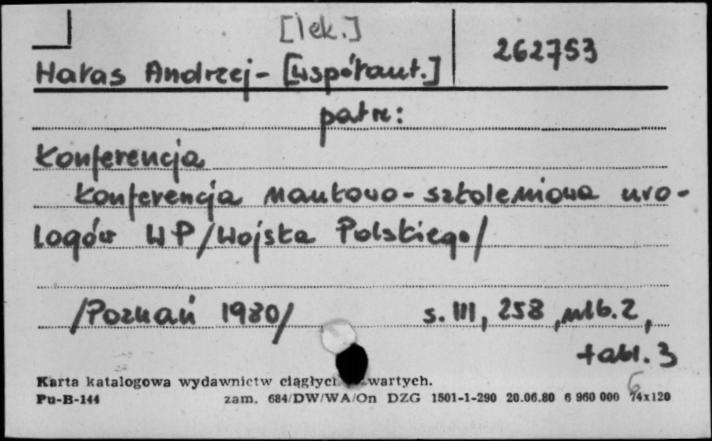 [lek.]
Hałas Andrzej - [współaut.] 262753
patrz:
Konferencja
Konferencja naukowo-szkoleniowa uro-
logów WP/Wojska Polskiego/
/Poznań 1980/ s. III, 258, nlb. 2,
tabl. 3
Karta katalogowa wydawnictw ciągłych wartych.
Pu-B-144 zam. 684/DW/WA/On DZG 1501-1-290 20.06.80 6 960 000 74x120